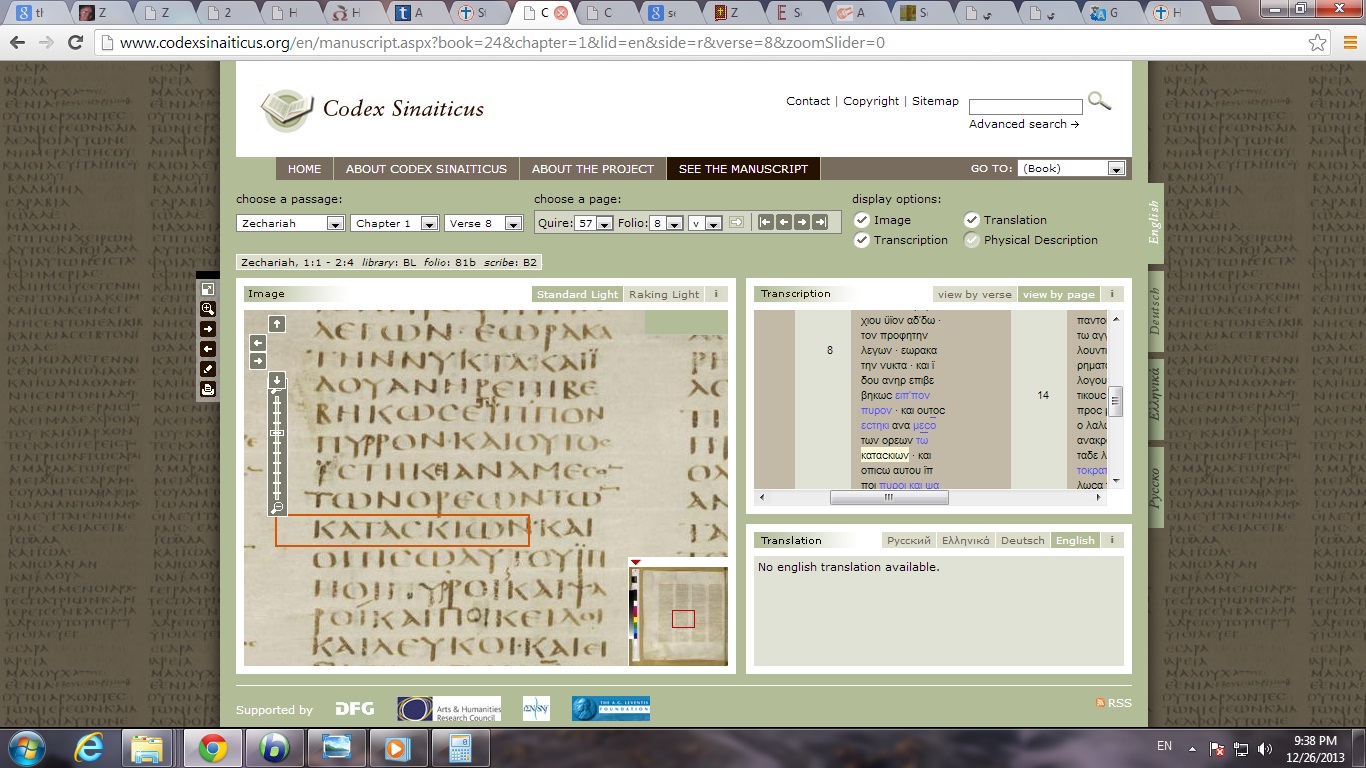 www.codexsinaiticus.org/en/manuscript.aspx?book=24&chapter=1&lid=en&side=r&verse=8&zoomSlider=0
Codex Sinaiticus
Contact | Copyright | Sitemap
Advanced search →
HOME ABOUT CODEX SINAITICUS ABOUT THE PROJECT SEE THE MANUSCRIPT GO TO: (Book)
choose a passage: choose a page: display options:
Zechariah Chapter 1 Verse 8 Quire: 57 Folio: 8 v
Image Translation
Transcription Physical Description
Zechariah, 1:1 - 2:4 library: BL folio: 81b scribe: B2
English
Deutsch
Ελληνικά
Русско
Image Standard Light Raking Light i
ΛΕΓΩΝ·ΕΩΡΑΚΑ
ΤΗΝΝΥΚΤΑ·ΚΑΙΪ
ΔΟΥΑΝΗΡΕΠΙΒΕ
ΒΗΚΩϹΕΙΠΠΟΝ
ΠΥΡΡΟΝ·ΚΑΙΟΥΤΟϹ
ΤΩΝΟΡΕΩΝΤΩ
ΚΑΤΑϹΚΙΩΝ·ΚΑΙ
ΟΠΙϹΩΑΥΤΟΥΪΠ
ΡΟΙΚΑΙΠΟΙΚΕΙΛΟΙ
ΚΑΙΛΕΥΚΟΙ·ΚΑΙΕΙ
Transcription view by verse view by page i
χιου ϋϊον αδ'δω ·
τον προφητην
8 λεγων · εωρακα
την νυκτα · και ϊ
δου ανηρ επιβε
βηκωϲ ειπ'πον
πυρον · και ουτοϲ
εϲτηκι ανα μεϲο̅
των ορεων τω̅
καταϲκιων · και
οπιϲω αυτου ϊπ
ποι πυροι και ψα
παντο
τω αγγ
λουντι
ρηματα
λογου
14 τικουϲ
προϲ μ
ο λαλω
ανακρ
ταδε λ
τοκρατ
λωϲα
Translation Русский Ελληνικά Deutsch English i
No english translation available.
Supported by DFG
Arts & Humanities
Research Council
THE A.G. LEVENTIS
FOUNDATION
RSS
EN
9:38 PM
12/26/2013